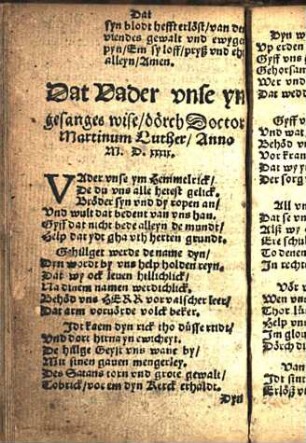 Dat
syn blodt hefft erlöst / van des
viendes gewalt vnd ewyge
pyn / Em sy loff / pryß vnd ehr
alleyn / Amen.
Dat Vader vnse yn
gesanges wise / dörch Doctor
Martinum Luther / Anno
M. D. xxxix.
VAder vnse ym hemmelrick /
De du vns alle hetest gelick.
Bröder syn vnd dy ropen an /
Vnd wult dat bedent van vns han.
Gyff dat nicht bede alleyn de mundt /
Help dat ydt gha vth herten grundt.
Gehilget werde de name dyn /
Dyn wordt by vns help holden reyn.
Dat wy ock leuen hillichlick /
Na dinem namen werdichlick.
Behöd vns HERR vor valscher leer /
Dat arm vorvörde volck beker.
Idt kaem dyn rick tho düsser tidt /
Vnd dort hirna yn ewicheyt.
De hillge Geyst vns wane by /
Mit sinen gauen mengerley.
Des Satans torn vnd grote gewalt /
Tobrick / vor em dyn Kerck erhaldt.
Dyn
Dyn w
Vp erden
Gyff vns g
Gehorsam
Wer vnd
Dat wedd
Gyff v
Vnd wat
Behöd vn
Vor kran
Dat wy yn
Der sorg
All vn
Dat se vn
Alß wy
Ere sch
To denen
In recht
Vör
Wen vns
Thor lü
Help vns
Im glou
Dörch di
Van
Idt sint
Erlöß v